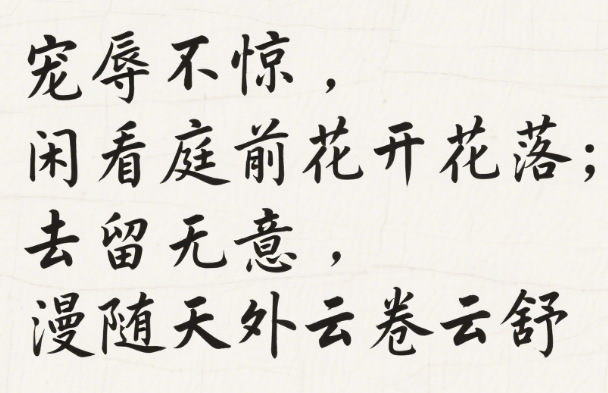 宠辱不惊，
闲看庭前花开花落；
去留无意，
漫随天外云卷云舒